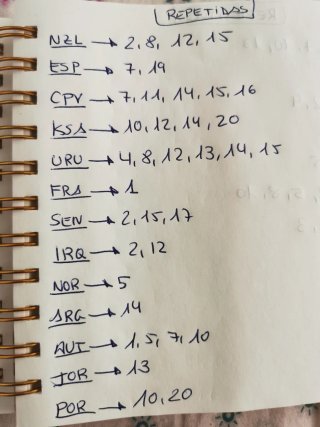 REPETIDAS
NZL → 2, 8, 12, 15
ESP → 7, 19
CPV → 7, 11, 14, 15, 16
KSA → 10, 12, 14, 20
URU → 4, 8, 12, 13, 14, 15
FRA → 1
SEN → 2, 15, 17
IRQ → 2, 12
NOR → 5
ARG → 14
AUT → 1, 5, 7, 10
JOR → 13
POR → 10, 20